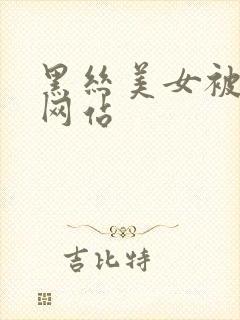 黑丝美女被
网站
吉比特